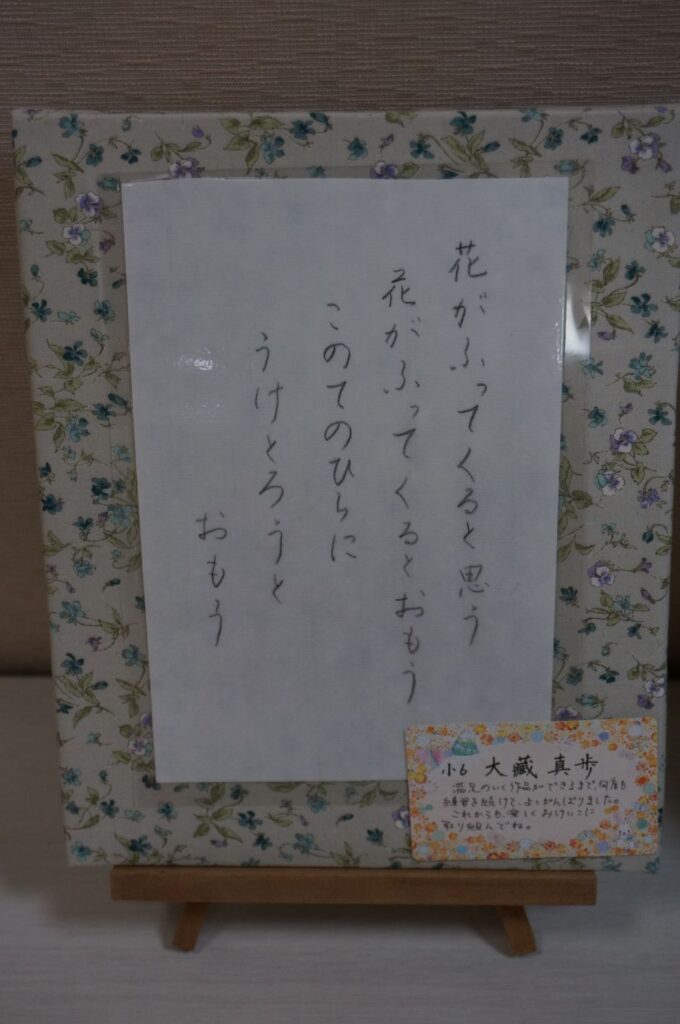 花がふってくると思う
花がふってくるとおもう
このてのひらに
うけとろうと
おもう
小6 大藏 真歩
満足のいく作品ができるまで、何度も
練習を続けて、よくがんばりました。
これからも、楽しくおけいこに
取り組んでね。